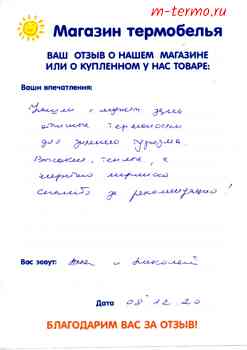 m-termo.ru
Магазин термобелья
ВАШ ОТЗЫВ О НАШЕМ МАГАЗИНЕ
ИЛИ О КУПЛЕННОМ У НАС ТОВАРЕ:
Ваши впечатления:
Нашли с мужем здесь
отличные термоноски
для зимнего туризма.
Высокие, теплые, с
шерстью мериноса
спасибо за рекомендацию!
Вас зовут: и Николай
Дата 08 12 20
БЛАГОДАРИМ ВАС ЗА ОТЗЫВ!